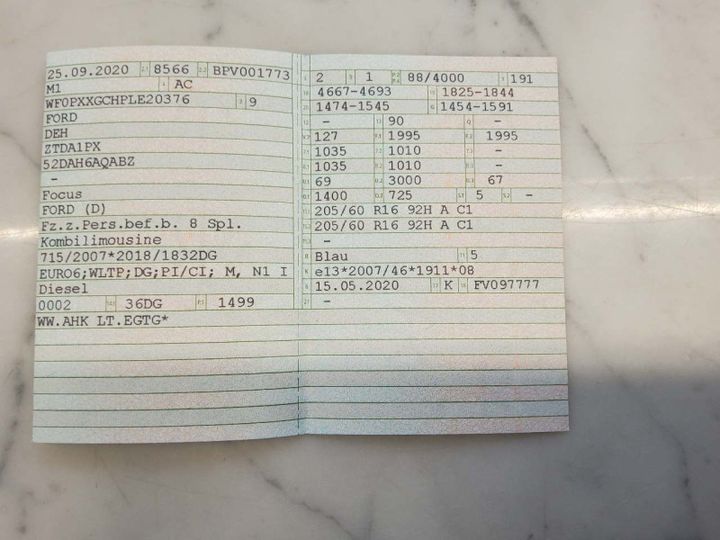 25.09.2020 8566 BPV001773
M1 AC
WF0PXXGCHPLE20376 9
FORD
DEH
ZTDA1PX
52DAH6AQABZ
-
Focus
FORD (D)
Fz.z.Pers.bef.b. 8 Spl.
Kombilimousine
715/2007*2018/1832DG
EURO6;WLTP;DG;PI/CI; M, N1 I
Diesel
0002 36DG 1499
WW.AHK LT.EGTG*
2 1 88/4000 191
4667-4693 1825-1844
1474-1545 1454-1591
- 90 -
127 1995 1995
1035 1010 -
1035 1010 -
69 3000 67
1400 725 5 -
205/60 R16 92H A C1
205/60 R16 92H A C1
-
Blau 5
e13*2007/46*1911*08
15.05.2020 K FV097777
-